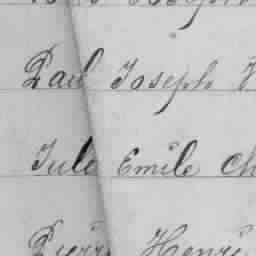 Paul Joseph
Jule Emile Ch
Pierre Henri